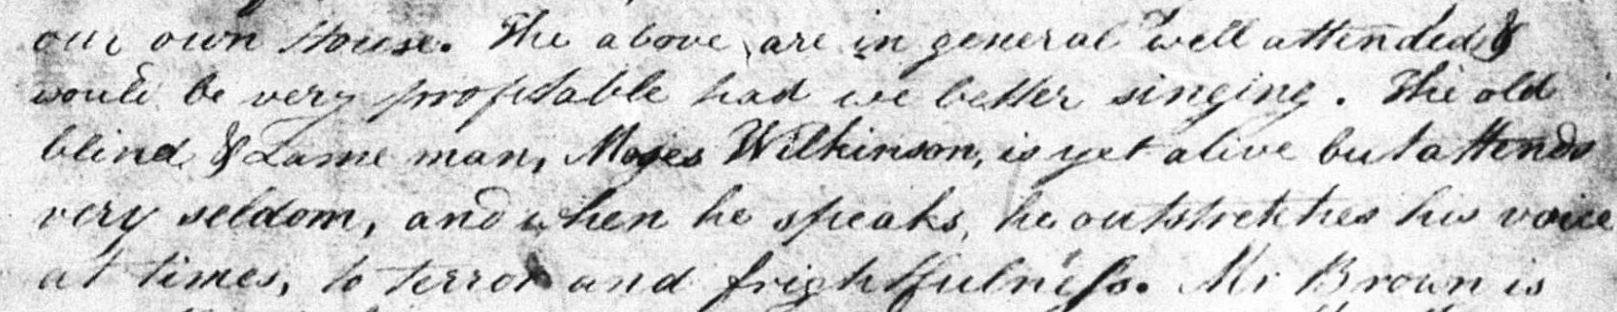 our own House. The above are in general well attended &
would be very profitable had we better singing. The old
blind & Lame man, Moses Wilkinson, is yet alive but attends
very seldom, and when he speaks, he outstretches his voice
at times, to terror and frightfulness. Mr Brown is